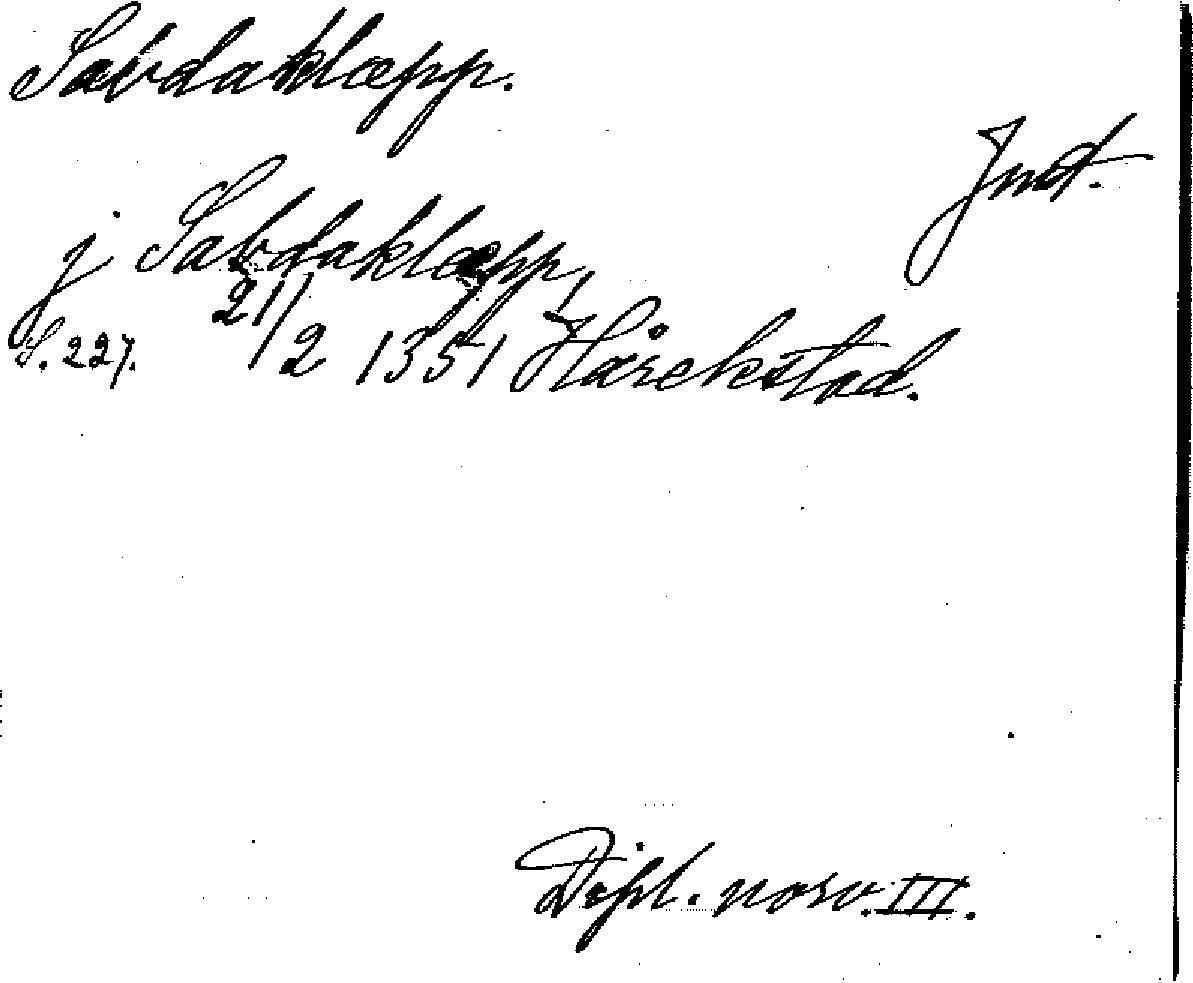 Sabdaklæpp.
Jnd.
j Sabdaklæpp,
S. 227. 21/2 1351 Hårekstad.
Dipl. norv. III.